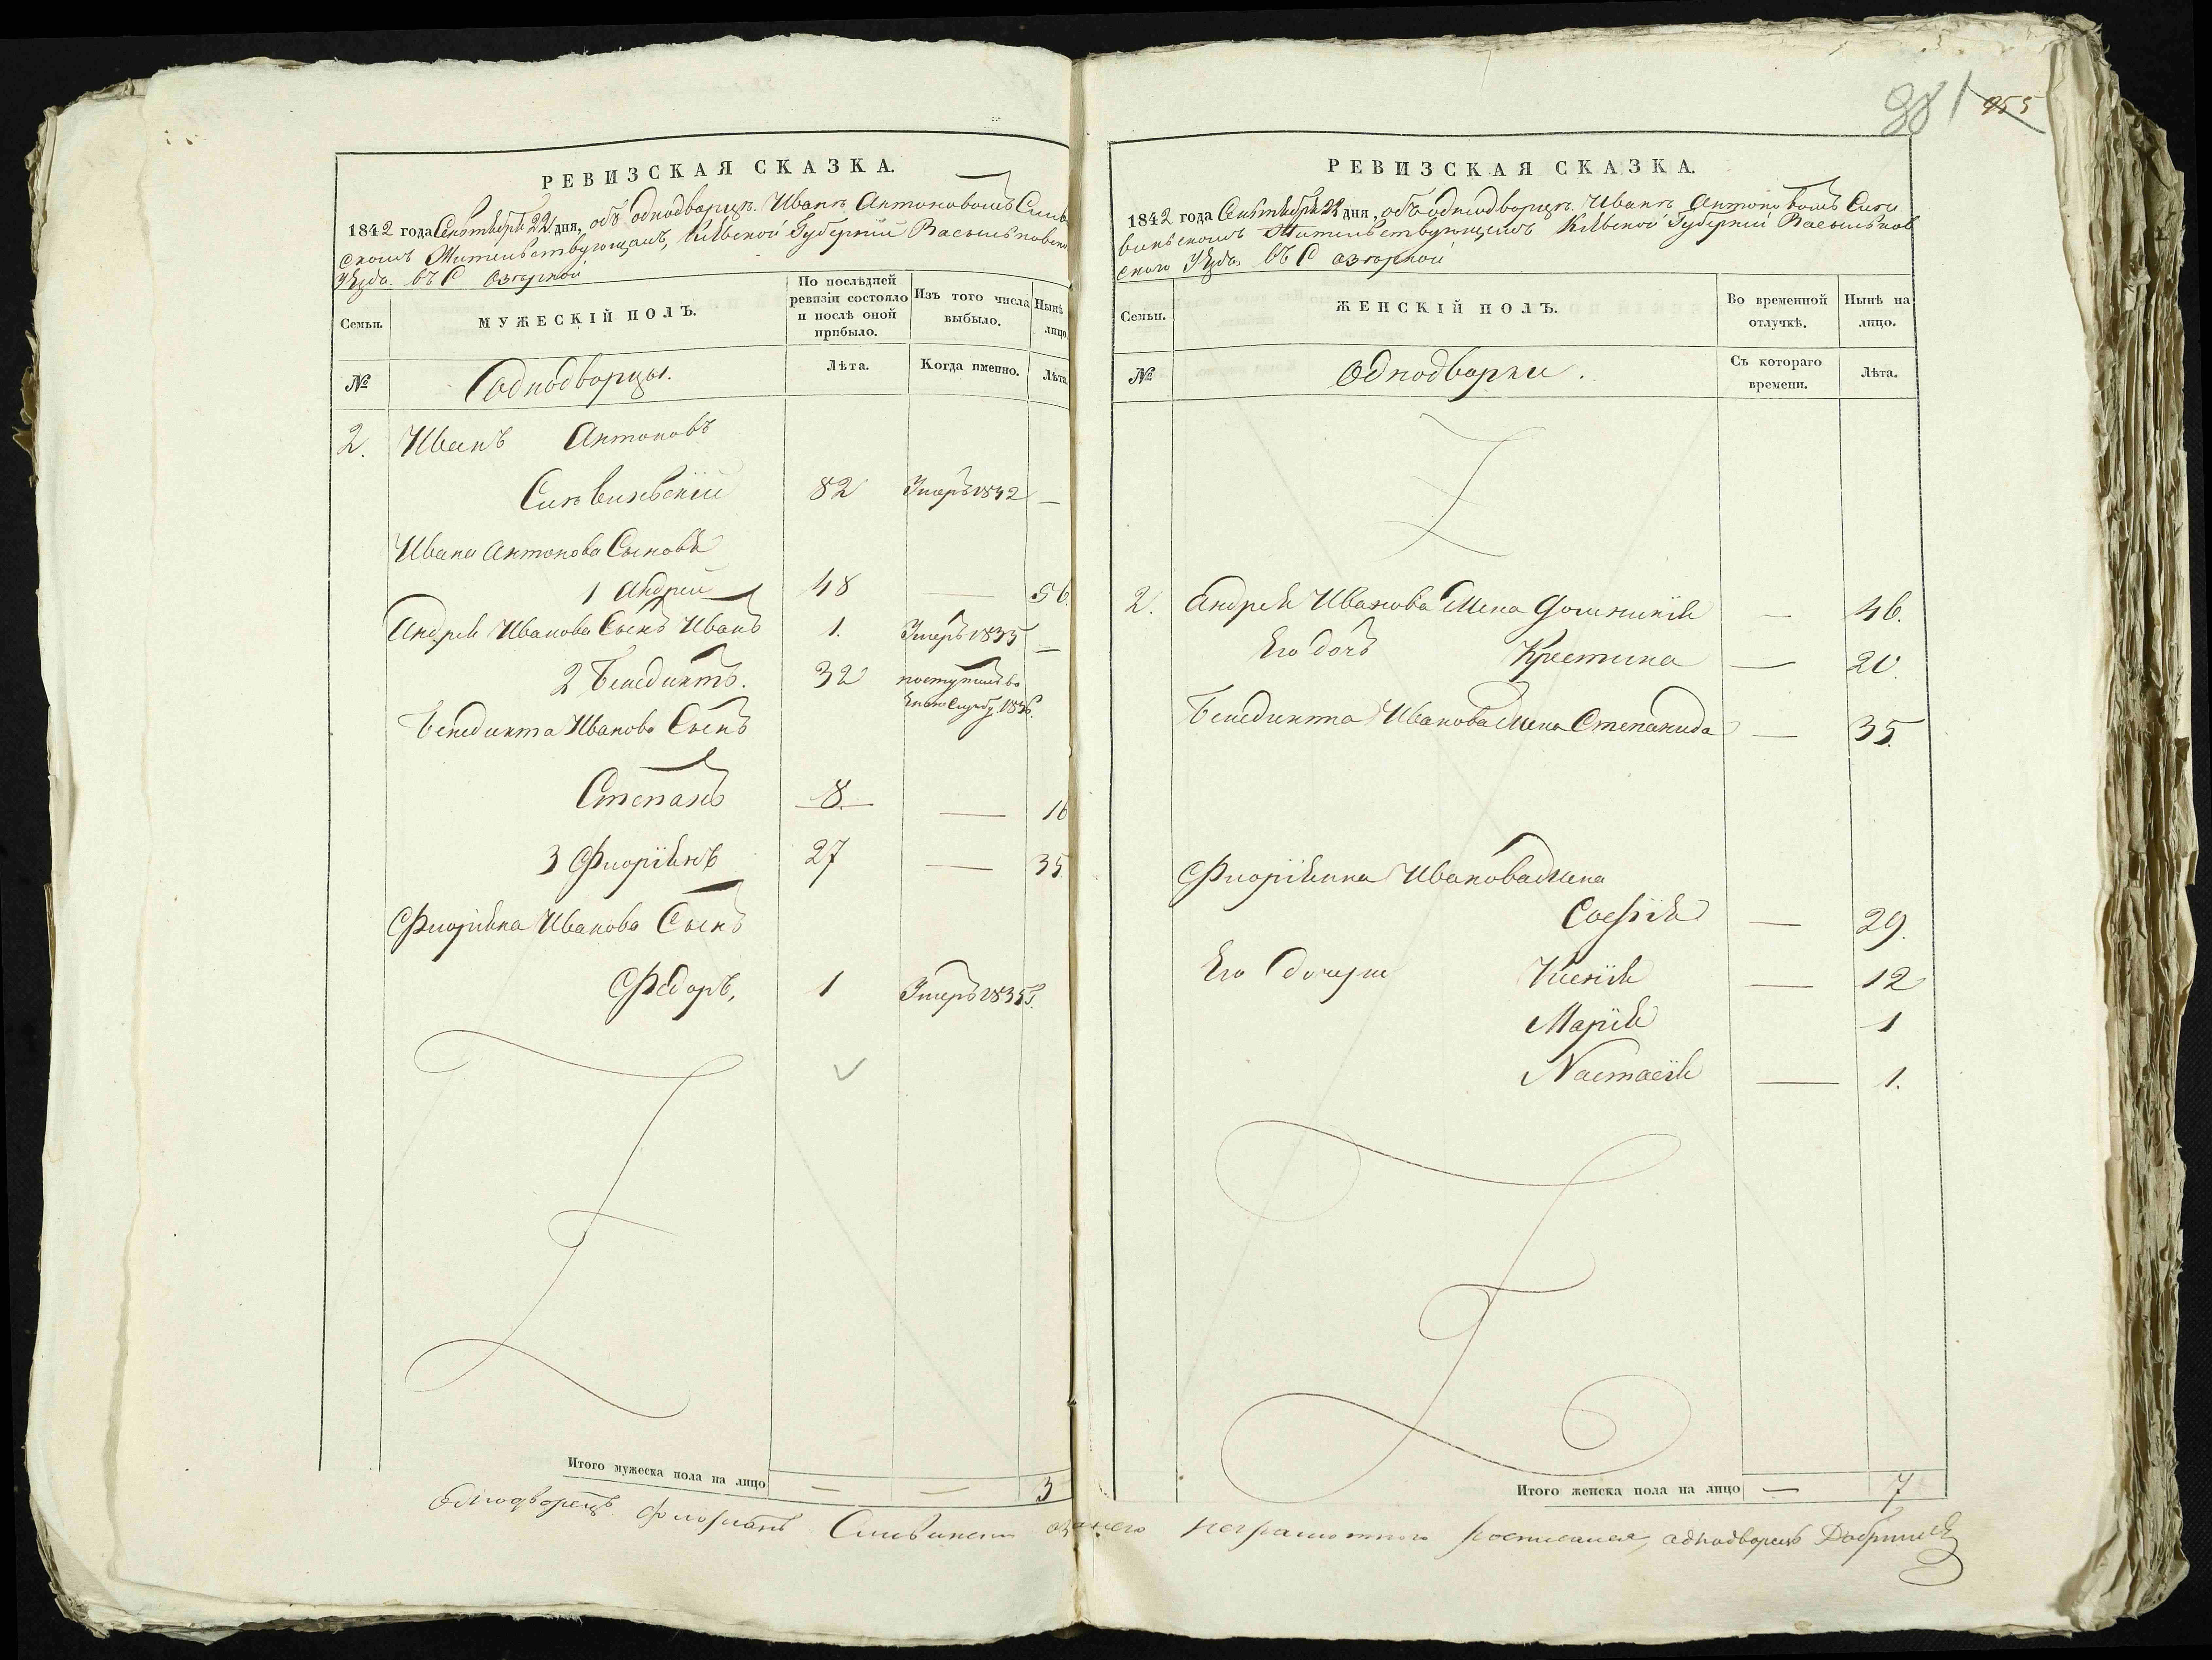 РЕВИЗСКАЯ СКАЗКА.
1842 года Сентября 22 дня, объ однодворцѣ Иванѣ Антоновомъ Сливи
скомъ Жительствующемъ, Кіевской Губерніи Васильковско
Уѣзда. въ С Озѣрной
Семьи.
МУЖЕСКІЙ ПОЛЪ.
По послѣдней ревизіи состояло и послѣ оной прибыло.
Изъ того числа выбыло.
Нынѣ лицо
№
Однодворцы.
Лѣта.
Когда именно.
Лѣта
2. Иванъ Антоновъ
Сливинскій 82 Умеръ 1832 —
Ивана Антонова Сыновья
1 Андрей 48 — 56.
Андрея Иванова Сынъ Иванъ 1. Умеръ 1835 —
2 Бенедиктъ. 32 поступилъ во
Службу 1836.
Бенедикта Иванова Сынъ
Степанъ 8. — 16
3 Флоріянъ 27 — 35.
Флоріяна Иванова Сынъ
Ѳедоръ, 1 Умеръ 1835 г.
Итого мужеска пола на лицо — — 3
381 255
РЕВИЗСКАЯ СКАЗКА.
1842 года Сентября 22 дня, объ однодворцѣ Иванѣ Антоновомъ Сли
винскомъ Жительствующемъ Кіевской Губерніи Васильков
ского Уѣзда. въ С Озѣрной
Семьи.
ЖЕНСКІЙ ПОЛЪ.
Во временной отлучкѣ.
Нынѣ на лицо.
№
Однодворки.
Съ котораго времени.
Лѣта.
2. Андрея Иванова Жена Доминикія — 46.
Его дочь Крестина — 20.
Бенедикта Иванова Жена Степанида — 35.
Флоріяна Иванова Жена
Софія — 29.
Его дочери Ксенія — 12
Марія 1
Настасія — 1.
Итого женска пола на лицо — 7
Однодворецъ Флоріанъ Сливински а за него неграмотного росписался, однодворецъ